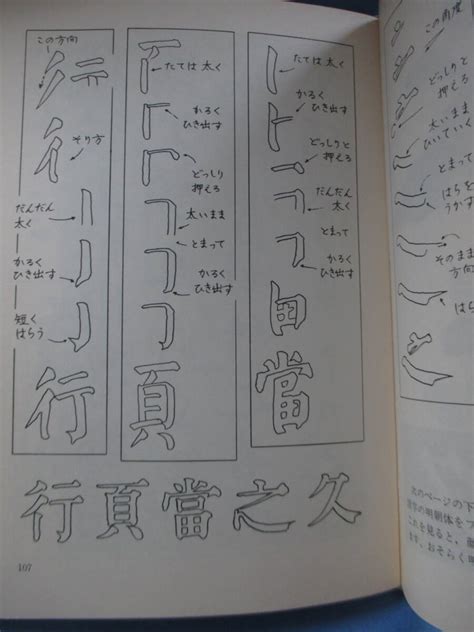 たては太く
かろく
ひき出す
どっしりと
押えろ
だんだん
太く
とまって
かろく
ひき出す
當
たては太く
かろく
ひき出す
どっしり
押えろ
太いまま
とまって
かろく
ひき出す
頁
この方向
そり方
だんだん
太く
かろく
ひき出す
短く
はらう
行
行頁當之久
107
この角度
どっしりと
押えろ
太いまま
ひいていく
とまって
はらを
うかす
そのまま
方向
はらう
次のページの下
の明朝体をつ
これを見ると、
ます。おそらく